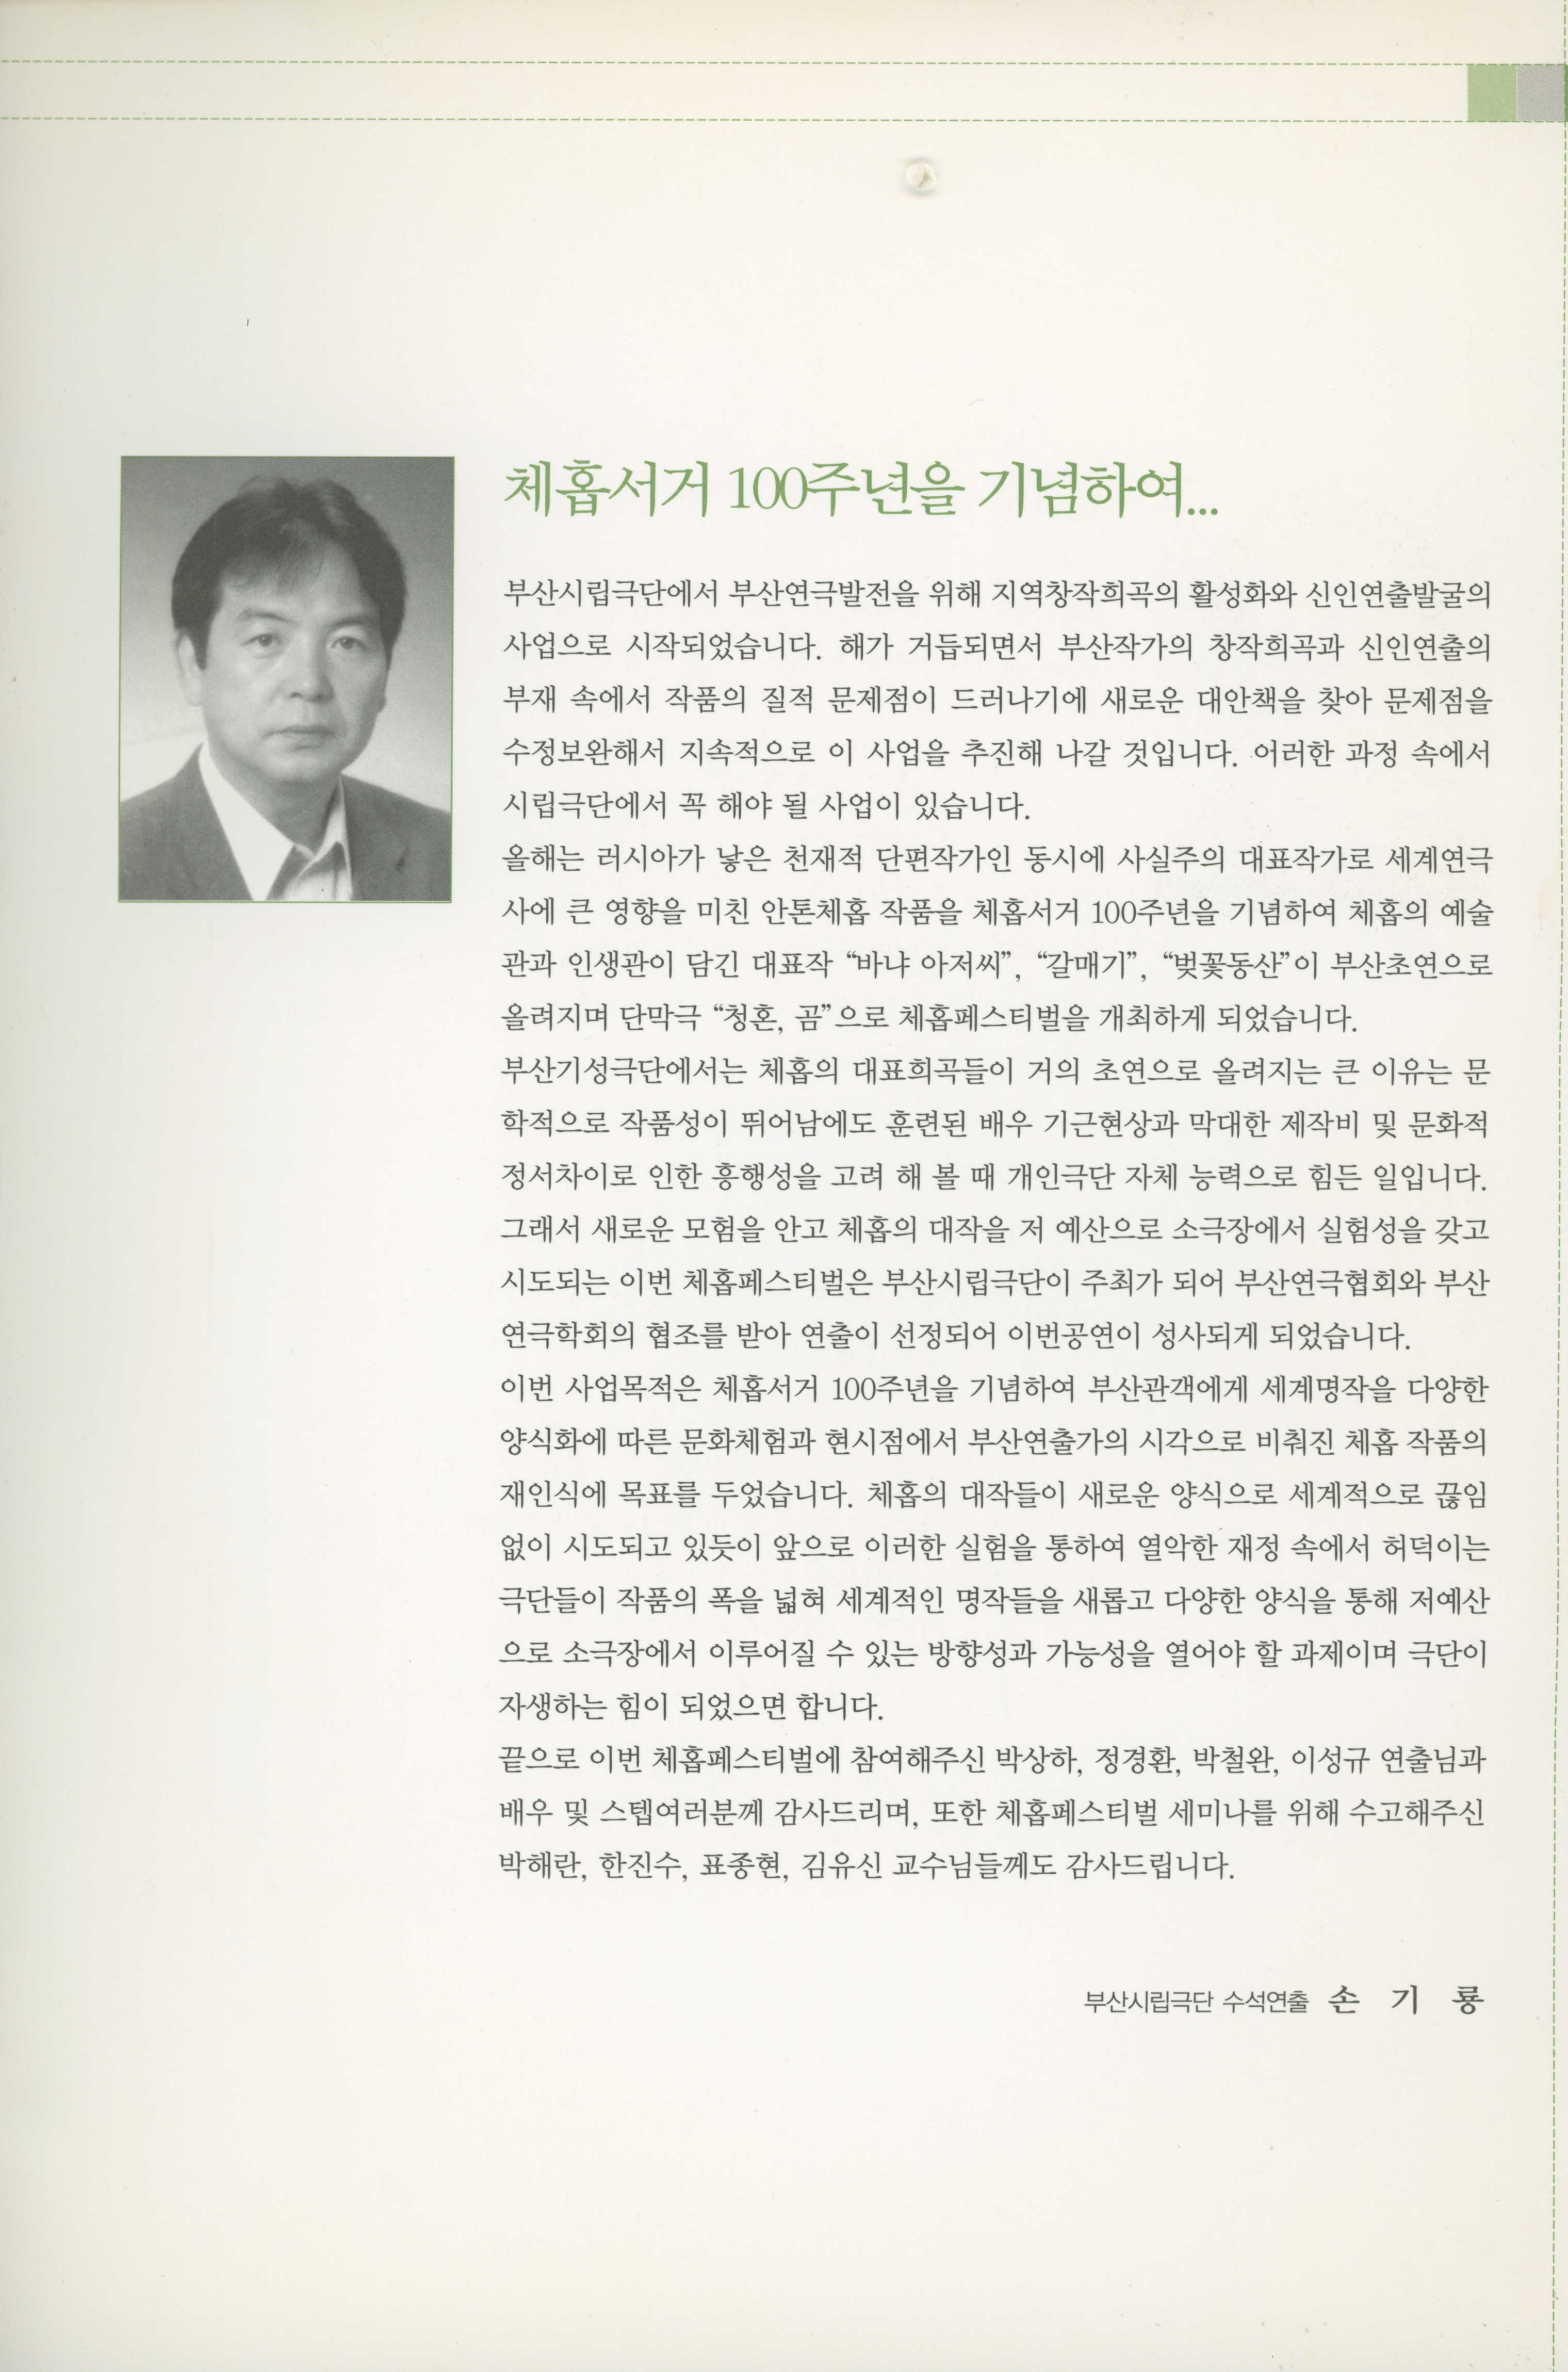 체홉서거 100주년을 기념하여...
부산시립극단에서 부산연극발전을 위해 지역창작희곡의 활성화와 신인연출발굴의
사업으로 시작되었습니다. 해가 거듭되면서 부산작가의 창작희곡과 신인연출의
부재 속에서 작품의 질적 문제점이 드러나기에 새로운 대안책을 찾아 문제점을
수정보완해서 지속적으로 이 사업을 추진해 나갈 것입니다. 어러한 과정 속에서
시립극단에서 꼭 해야 될 사업이 있습니다.
올해는 러시아가 낳은 천재적 단편작가인 동시에 사실주의 대표작가로 세계연극
사에 큰 영향을 미친 안톤체홉 작품을 체홉서거 100주년을 기념하여 체홉의 예술
관과 인생관이 담긴 대표작 “바냐 아저씨”, “갈매기”, “벚꽃동산”이 부산초연으로
올려지며 단막극 “청혼, 곰”으로 체홉페스티벌을 개최하게 되었습니다.
부산기성극단에서는 체홉의 대표희곡들이 거의 초연으로 올려지는 큰 이유는 문
학적으로 작품성이 뛰어남에도 훈련된 배우 기근현상과 막대한 제작비 및 문화적
정서차이로 인한 흥행성을 고려 해 볼 때 개인극단 자체 능력으로 힘든 일입니다.
그래서 새로운 모험을 안고 체홉의 대작을 저 예산으로 소극장에서 실험성을 갖고
시도되는 이번 체홉페스티벌은 부산시립극단이 주최가 되어 부산연극협회와 부산
연극학회의 협조를 받아 연출이 선정되어 이번공연이 성사되게 되었습니다.
이번 사업목적은 체홉서거 100주년을 기념하여 부산관객에게 세계명작을 다양한
양식화에 따른 문화체험과 현시점에서 부산연출가의 시각으로 비춰진 체홉 작품의
재인식에 목표를 두었습니다. 체홉의 대작들이 새로운 양식으로 세계적으로 끊임
없이 시도되고 있듯이 앞으로 이러한 실험을 통하여 열악한 재정 속에서 허덕이는
극단들이 작품의 폭을 넓혀 세계적인 명작들을 새롭고 다양한 양식을 통해 저예산
으로 소극장에서 이루어질 수 있는 방향성과 가능성을 열어야 할 과제이며 극단이
자생하는 힘이 되었으면 합니다.
끝으로 이번 체홉페스티벌에 참여해주신 박상하, 정경환, 박철완, 이성규 연출님과
배우 및 스텝여러분께 감사드리며, 또한 체홉페스티벌 세미나를 위해 수고해주신
박해란, 한진수, 표종현, 김유신 교수님들께도 감사드립니다.
부산시립극단 수석연출 손 기 룡